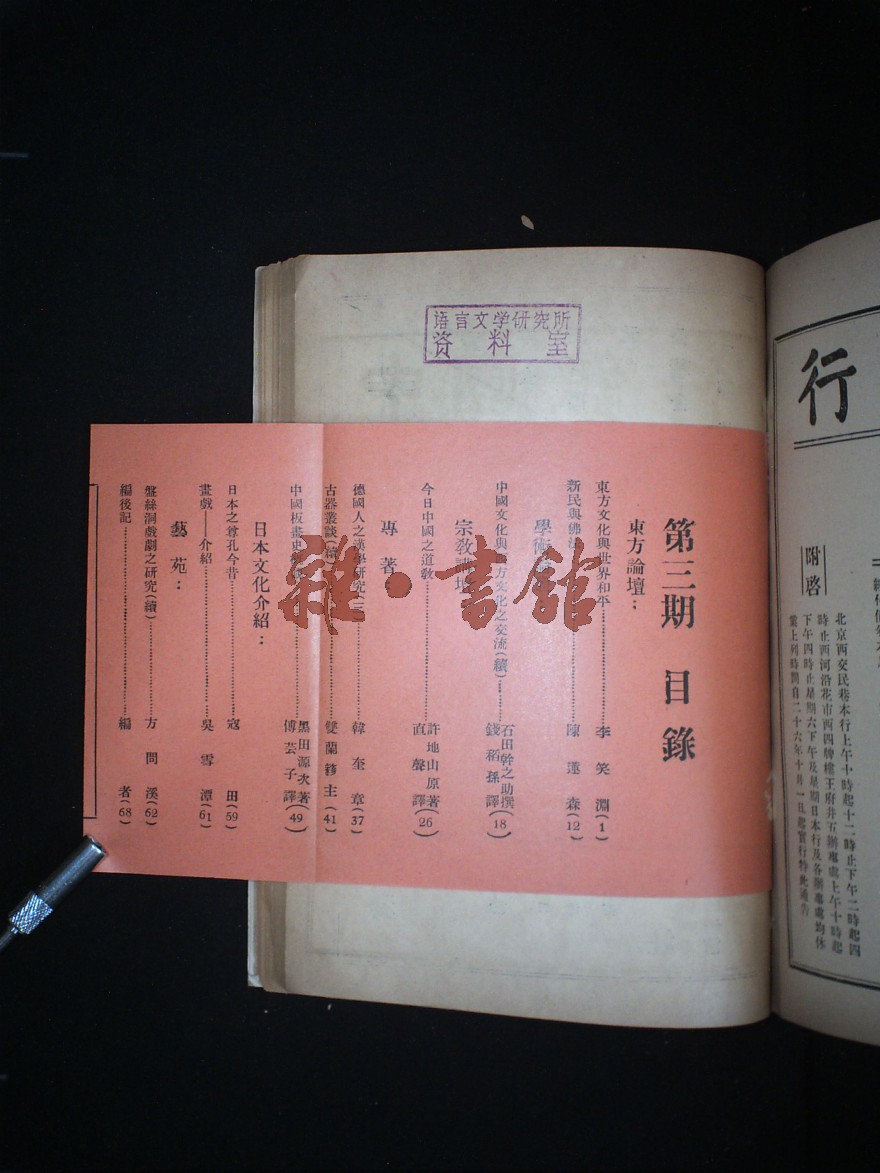 语言文学研究所
资料室
行
附啓
北京西交民巷本行上午十時起十二時止下午二時起四
時止西河沿花市西四牌樓王府井五辦事處上午十時起
下午四時止星期六下午及星期日本行及各辦事處均休
業上列時間自二十六年十月一日起實行特此通告
第三期 目錄
東方論壇：
東方文化與世界和平 李笑淵(1)
新民與佛法 陳蓮森(12)
學術
中國文化與 方文化之交流(續) 石田幹之助撰 錢稻孫譯(18)
宗教講壇
今日中國之道教 許地山原著 直聲譯(26)
專著
德國人之漢學研究(三) 韓奎章(37)
古器叢談(續) 雙蘭簃主(41)
中國板畫史 黑田源次著 傅芸子譯(49)
日本文化介紹：
日本之尊孔今昔 寇田(59)
畫戲——介紹 吳雪潭(61)
藝苑：
盤絲洞戲劇之研究(續) 方問溪(62)
編後記 編者(68)
雜·書館